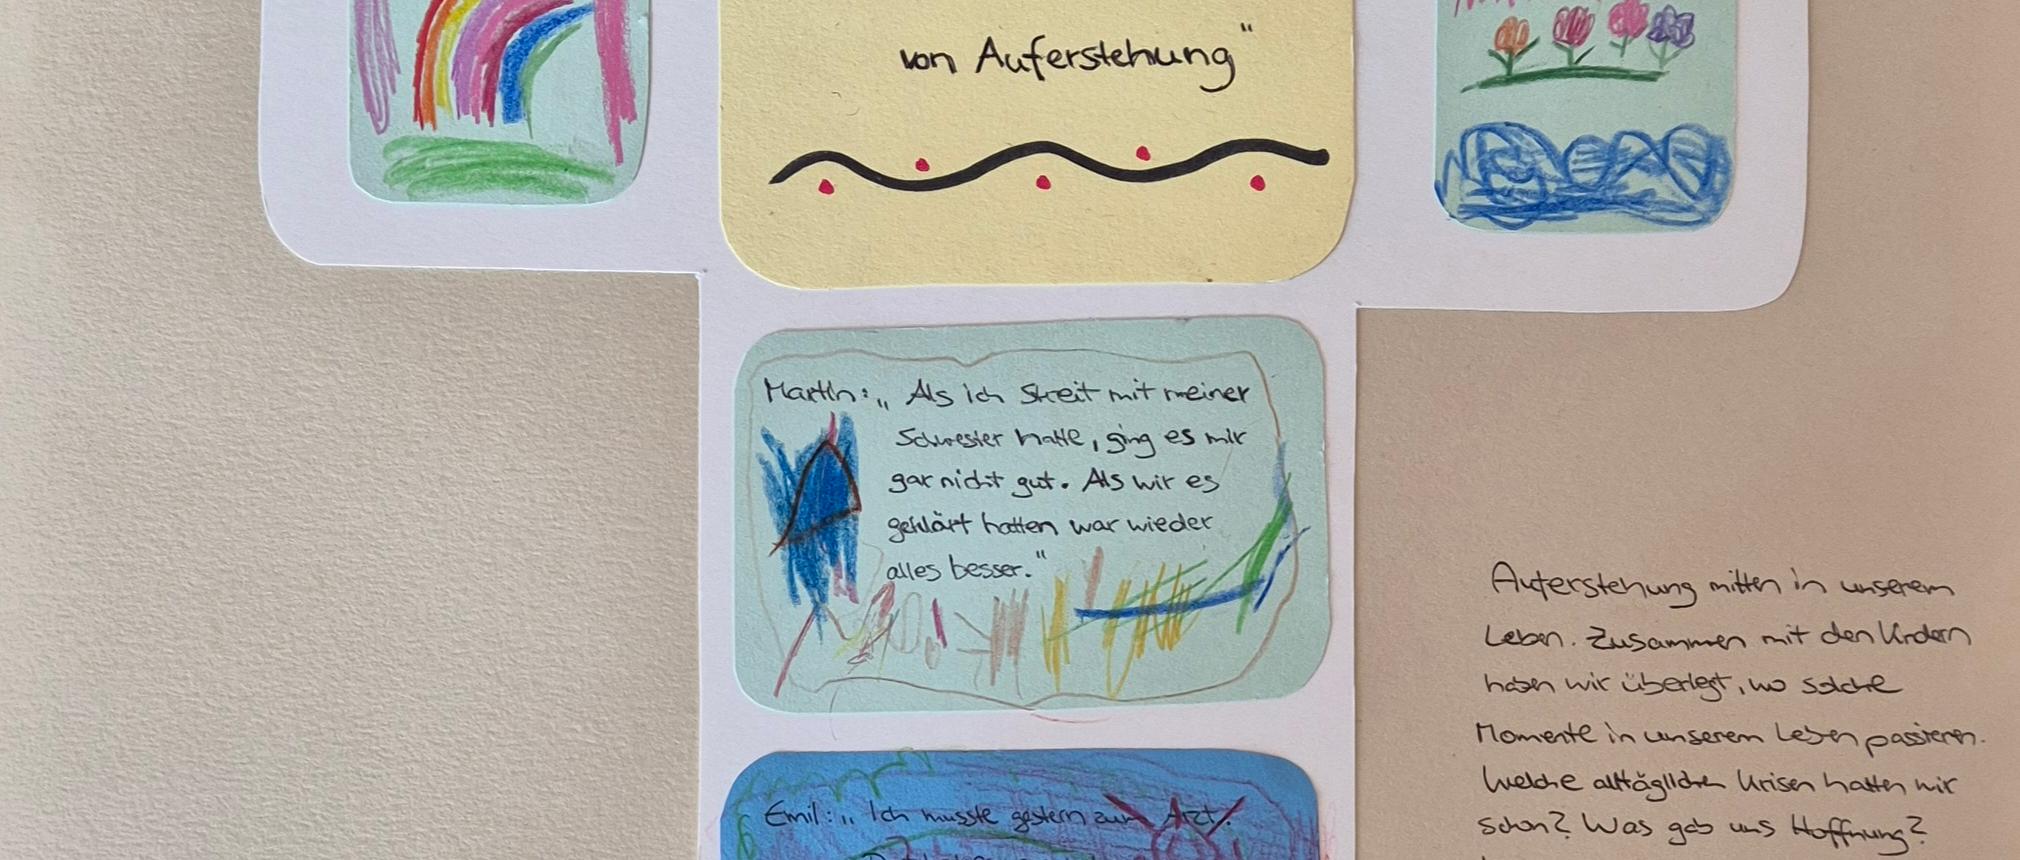 von Auferstehung"
Martin: „Als ich Streit mit meiner
Schwester hatte, ging es mir
gar nicht gut. Als wir es
geklärt hatten war wieder
alles besser."
Emil: „Ich musste gestern zum Arzt.
Auferstehung mitten in unserem
Leben. Zusammen mit den Kindern
haben wir überlegt, wo solche
Momente in unserem Leben passieren.
Welche alltäglichen Krisen hatten wir
schon? Was gab uns Hoffnung?